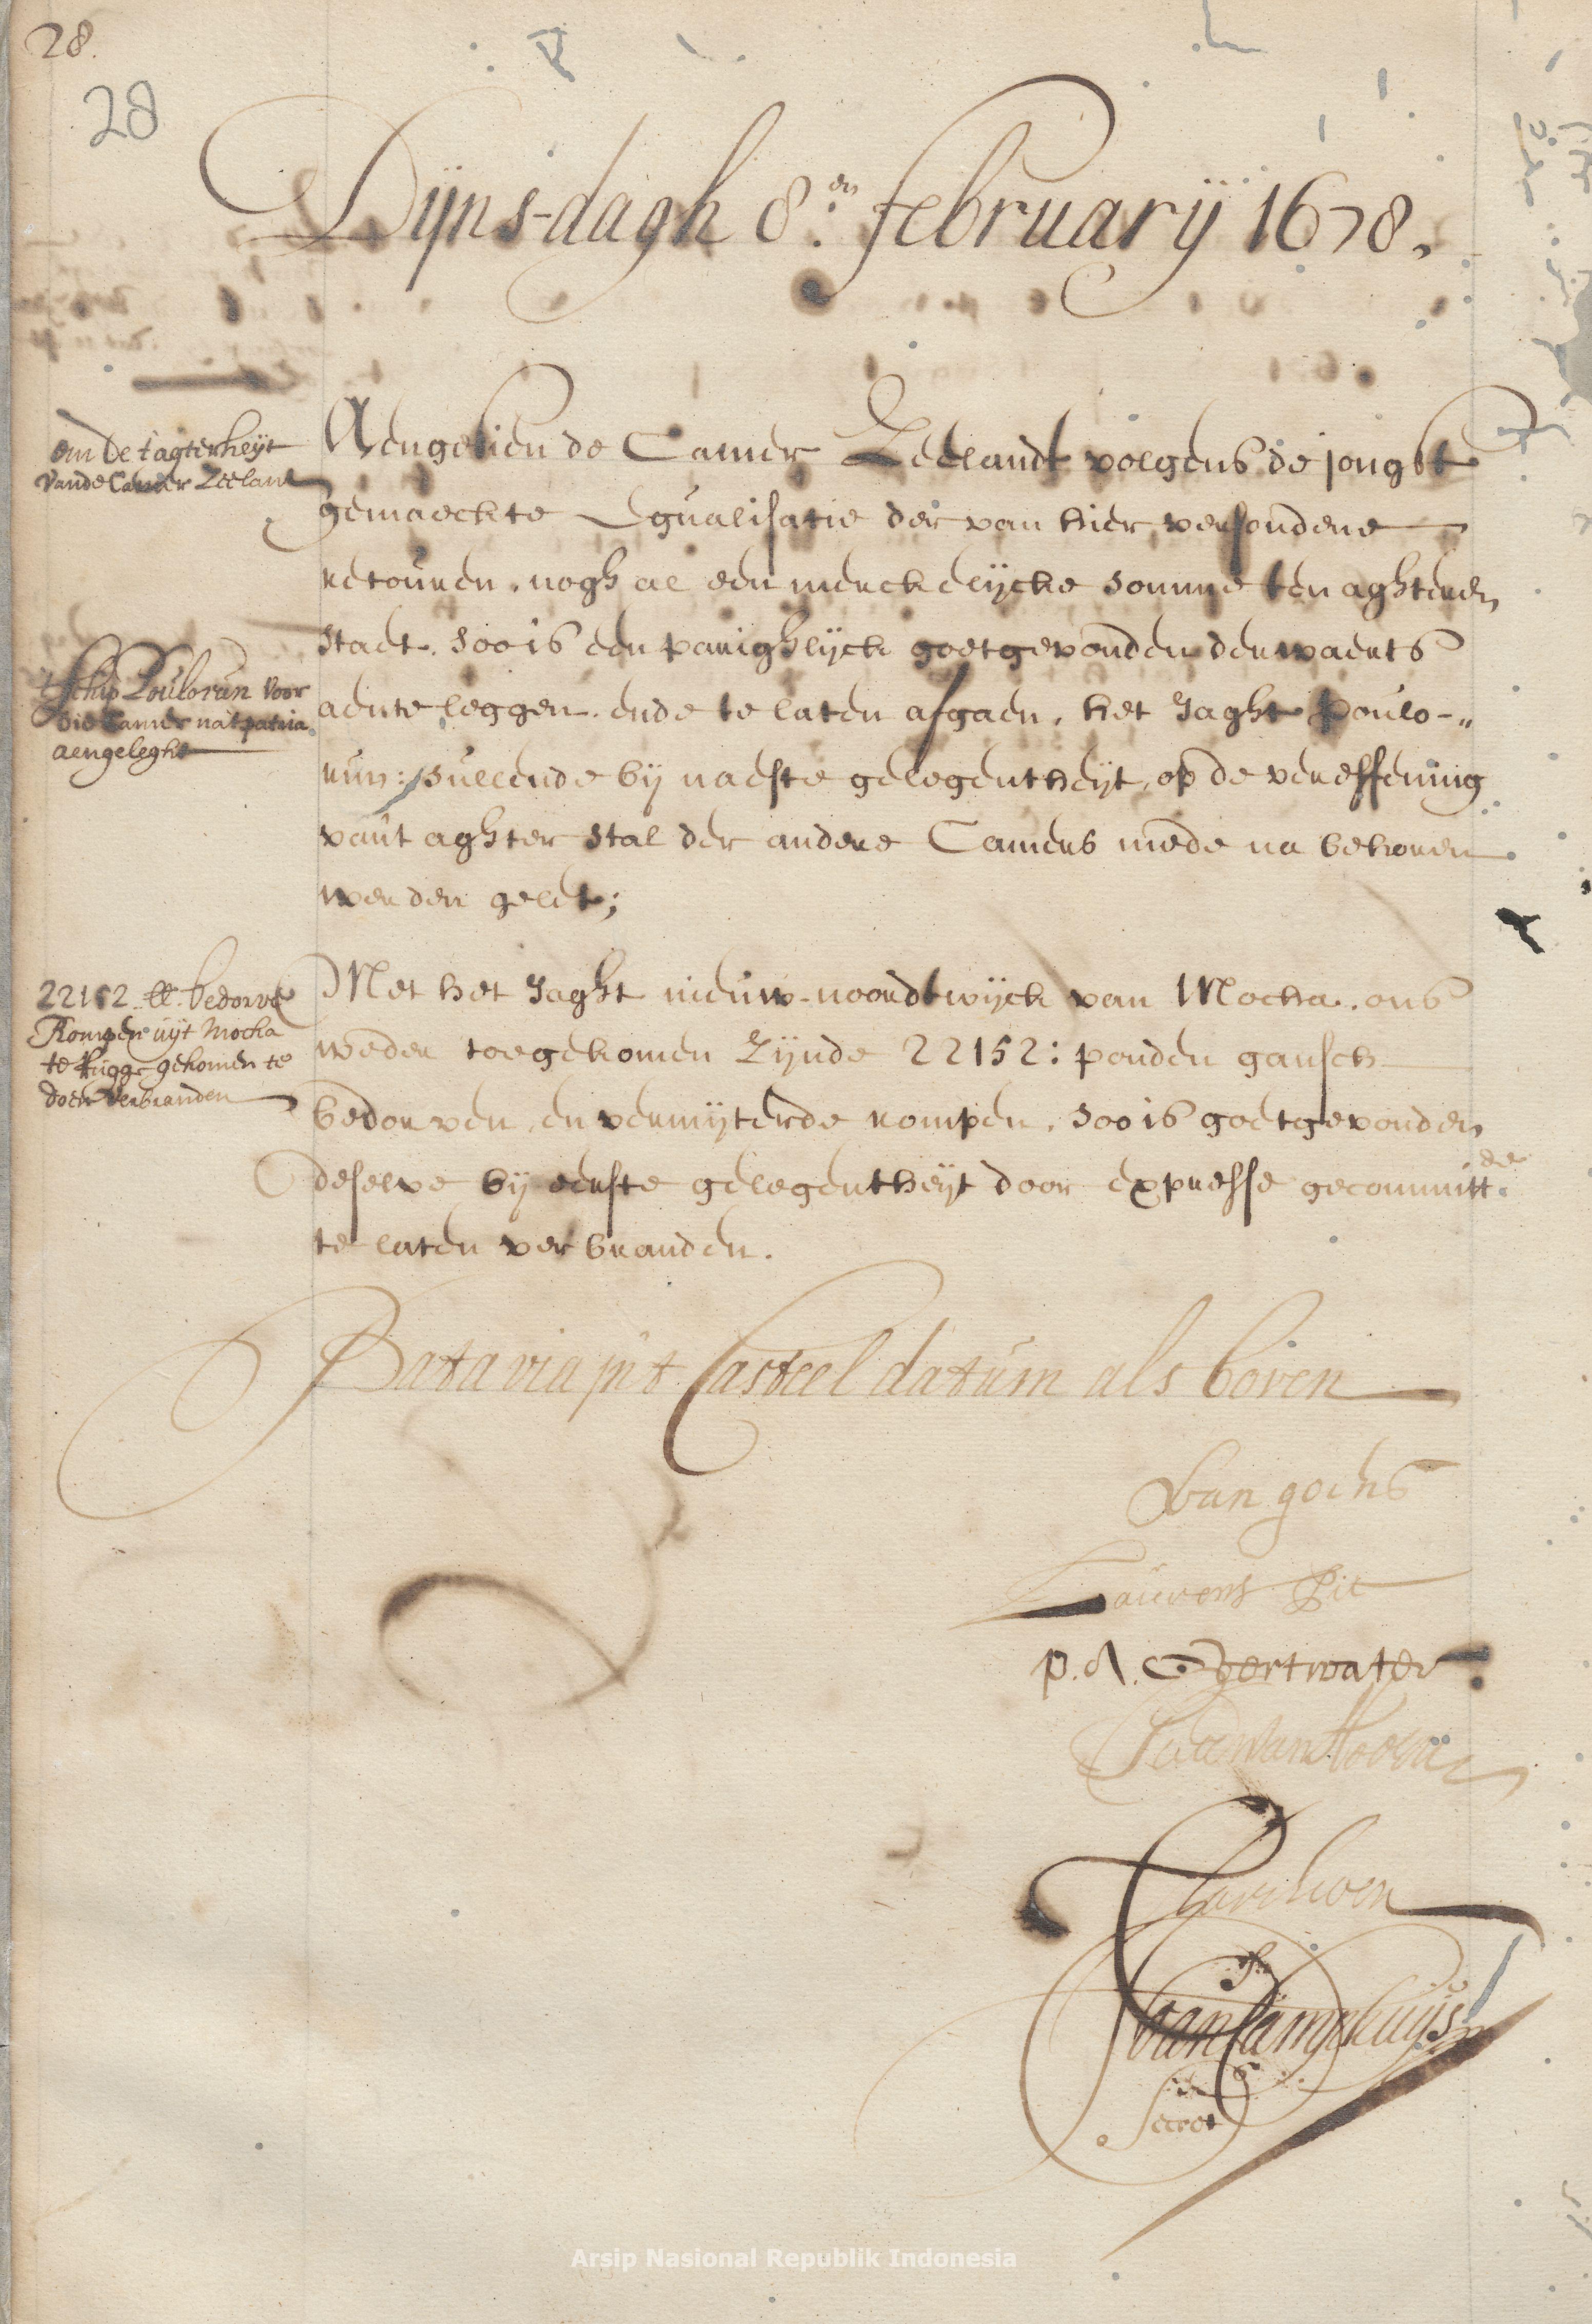 28.
28
Dijns-dagh 8.en february 1678.
om de t'agterheijt
vande Camer Zeelant
Aengesien de Camer Zeelandt volgens de jongst
gemaeckte Egualisatie der van hier versondene
retouren, nogh al een merckelijcke somme ten aghteren
staet, soo is eenparighlijck goetgevonden derwaerts
't schip Pouloron voor
die Camer na't patria
aengeleght
aen te leggen, ende te laten afgaen, het Jaght Poulo-"
run: sullende bij naeste gelegentheijt, op de vereffening
van't aghterstal der andere Camers mede na behoren
werden gelet;
22152 lb bedorve
Rompen uijt Mocha
te rugge gekomen te
doen verbranden
Met het Jaght nieuw-noordtwijck van Mocha, ons
weder toegekomen zijnde 22152: ponden gansch
bedorven, en vermijterde rompen, soo is goetgevonden
deselve bij eerste gelegentheijt door expresse gecommitt.de
te laten verbranden.
Batavia in't Casteel datum als boven
van goens
Laurens Pit
p. A. Overtwater
Willem van Outhoorn
secret
Arsip Nasional Republik Indonesia